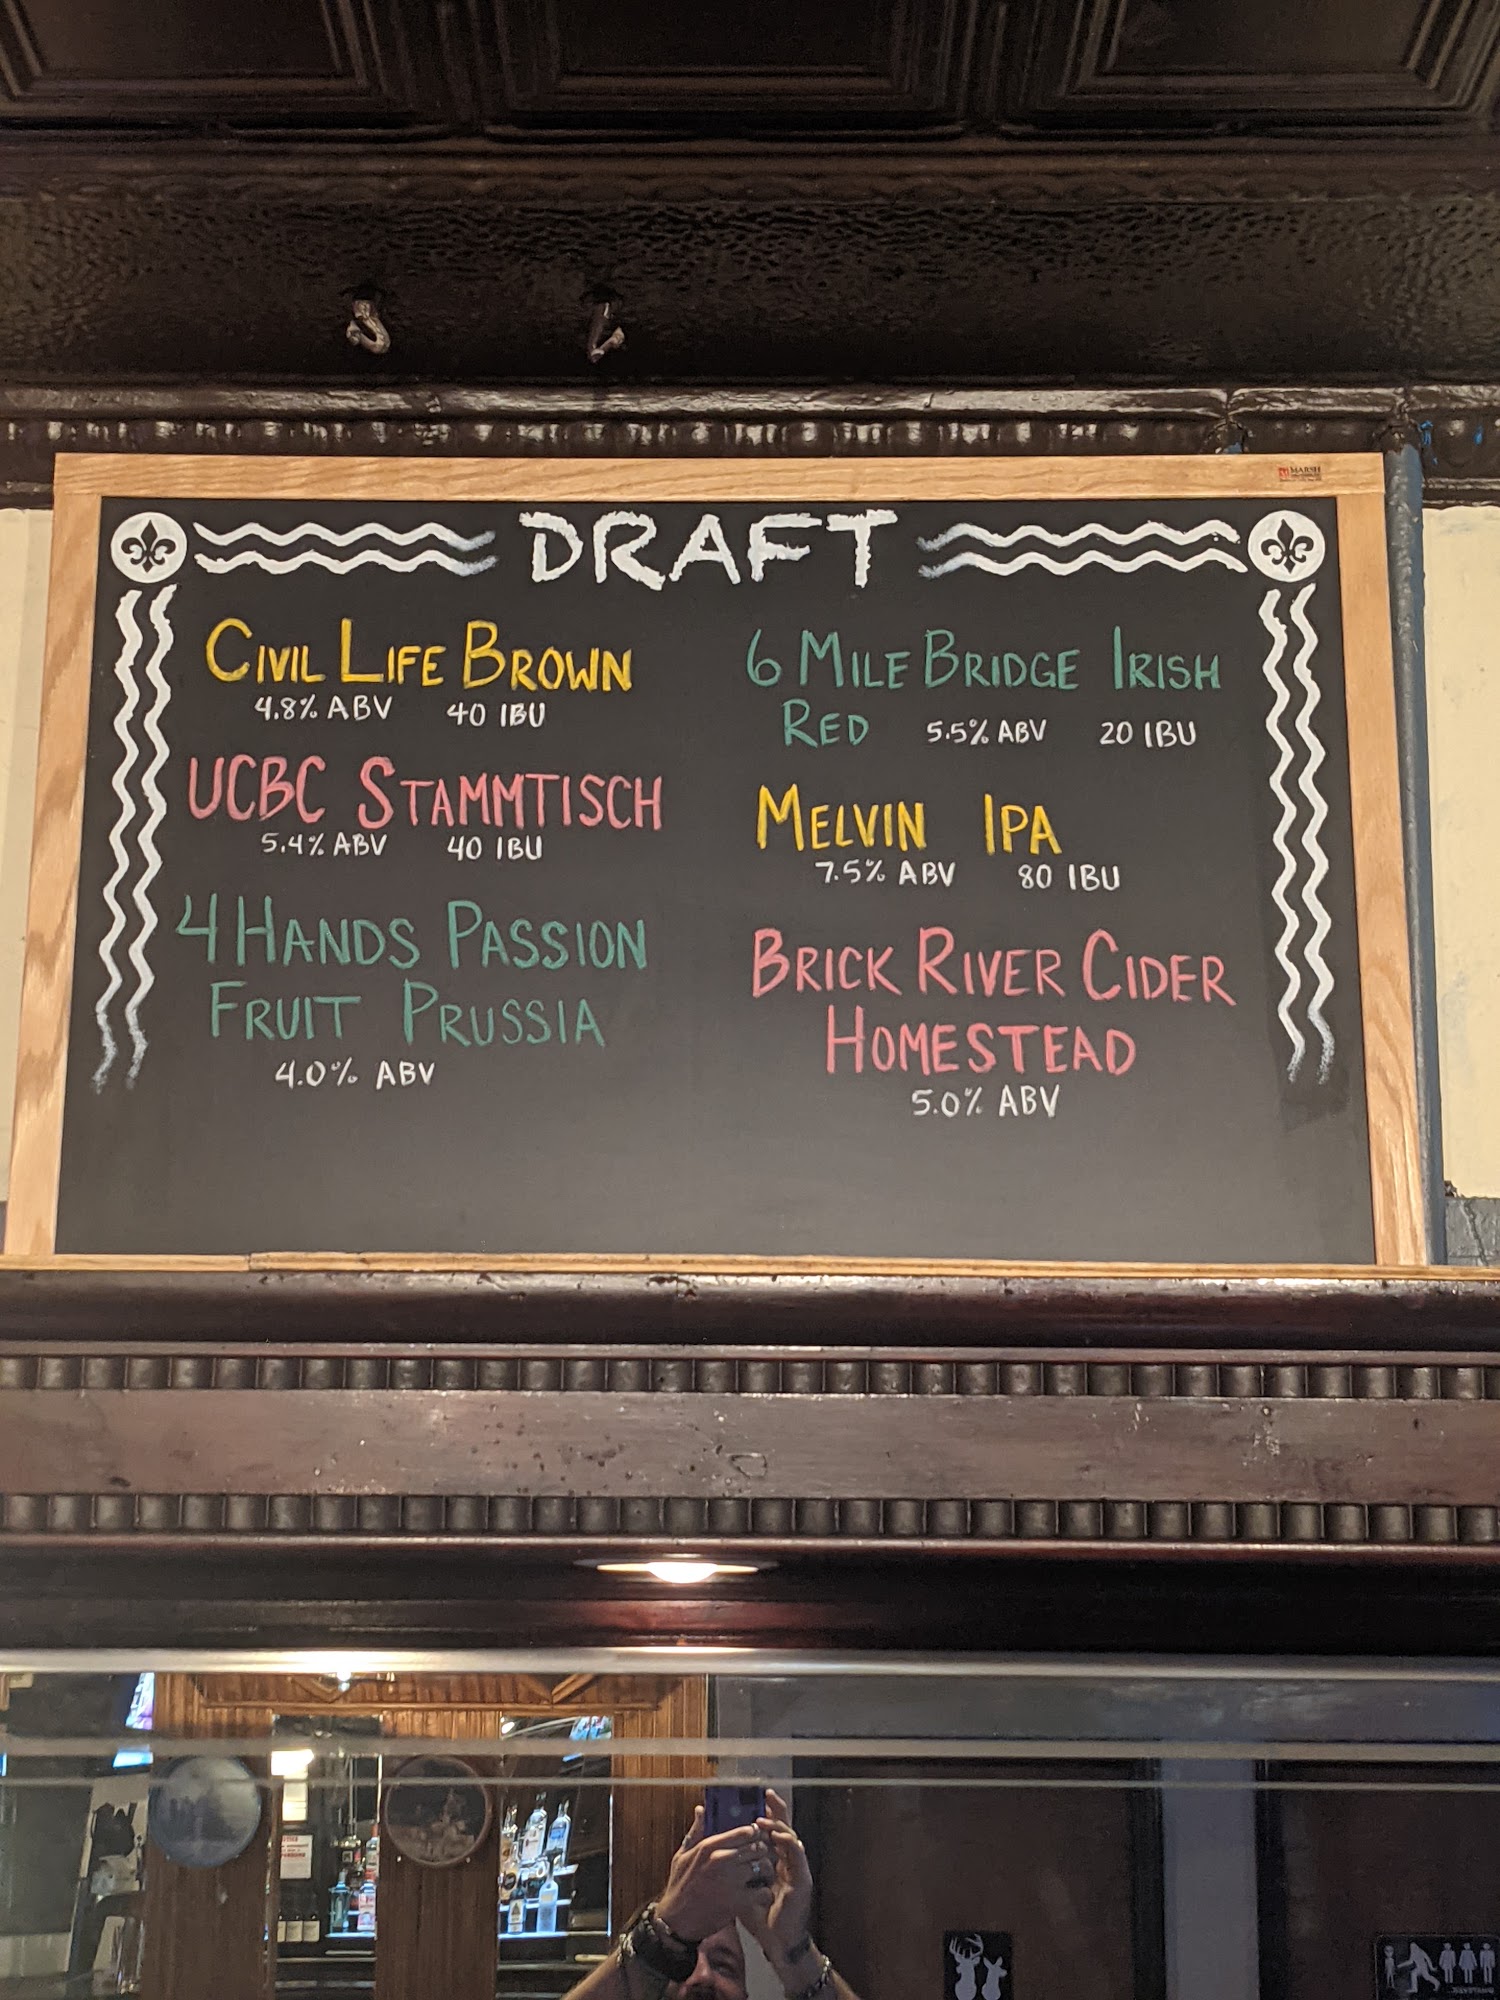 MARSH
DRAFT
CIVIL LIFE BROWN
4.8% ABV 40 IBU
UCBC STAMMTISCH
5.4% ABV 40 IBU
4 HANDS PASSION
FRUIT PRUSSIA
4.0% ABV
6 MILE BRIDGE IRISH
RED 5.5% ABV 20 IBU
MELVIN IPA
7.5% ABV 80 IBU
BRICK RIVER CIDER
HOMESTEAD
5.0% ABV